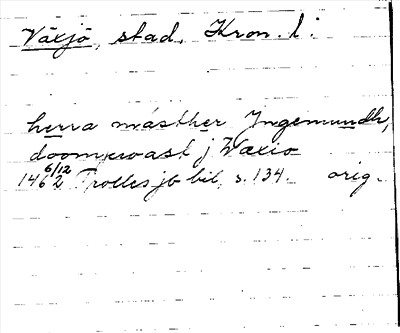 Växjö, stad, Kron. l:
herra mästher Jngemundh,
doomprwast j Wæxio
1462 6/12 Trolles jb bil, s. 134. orig.